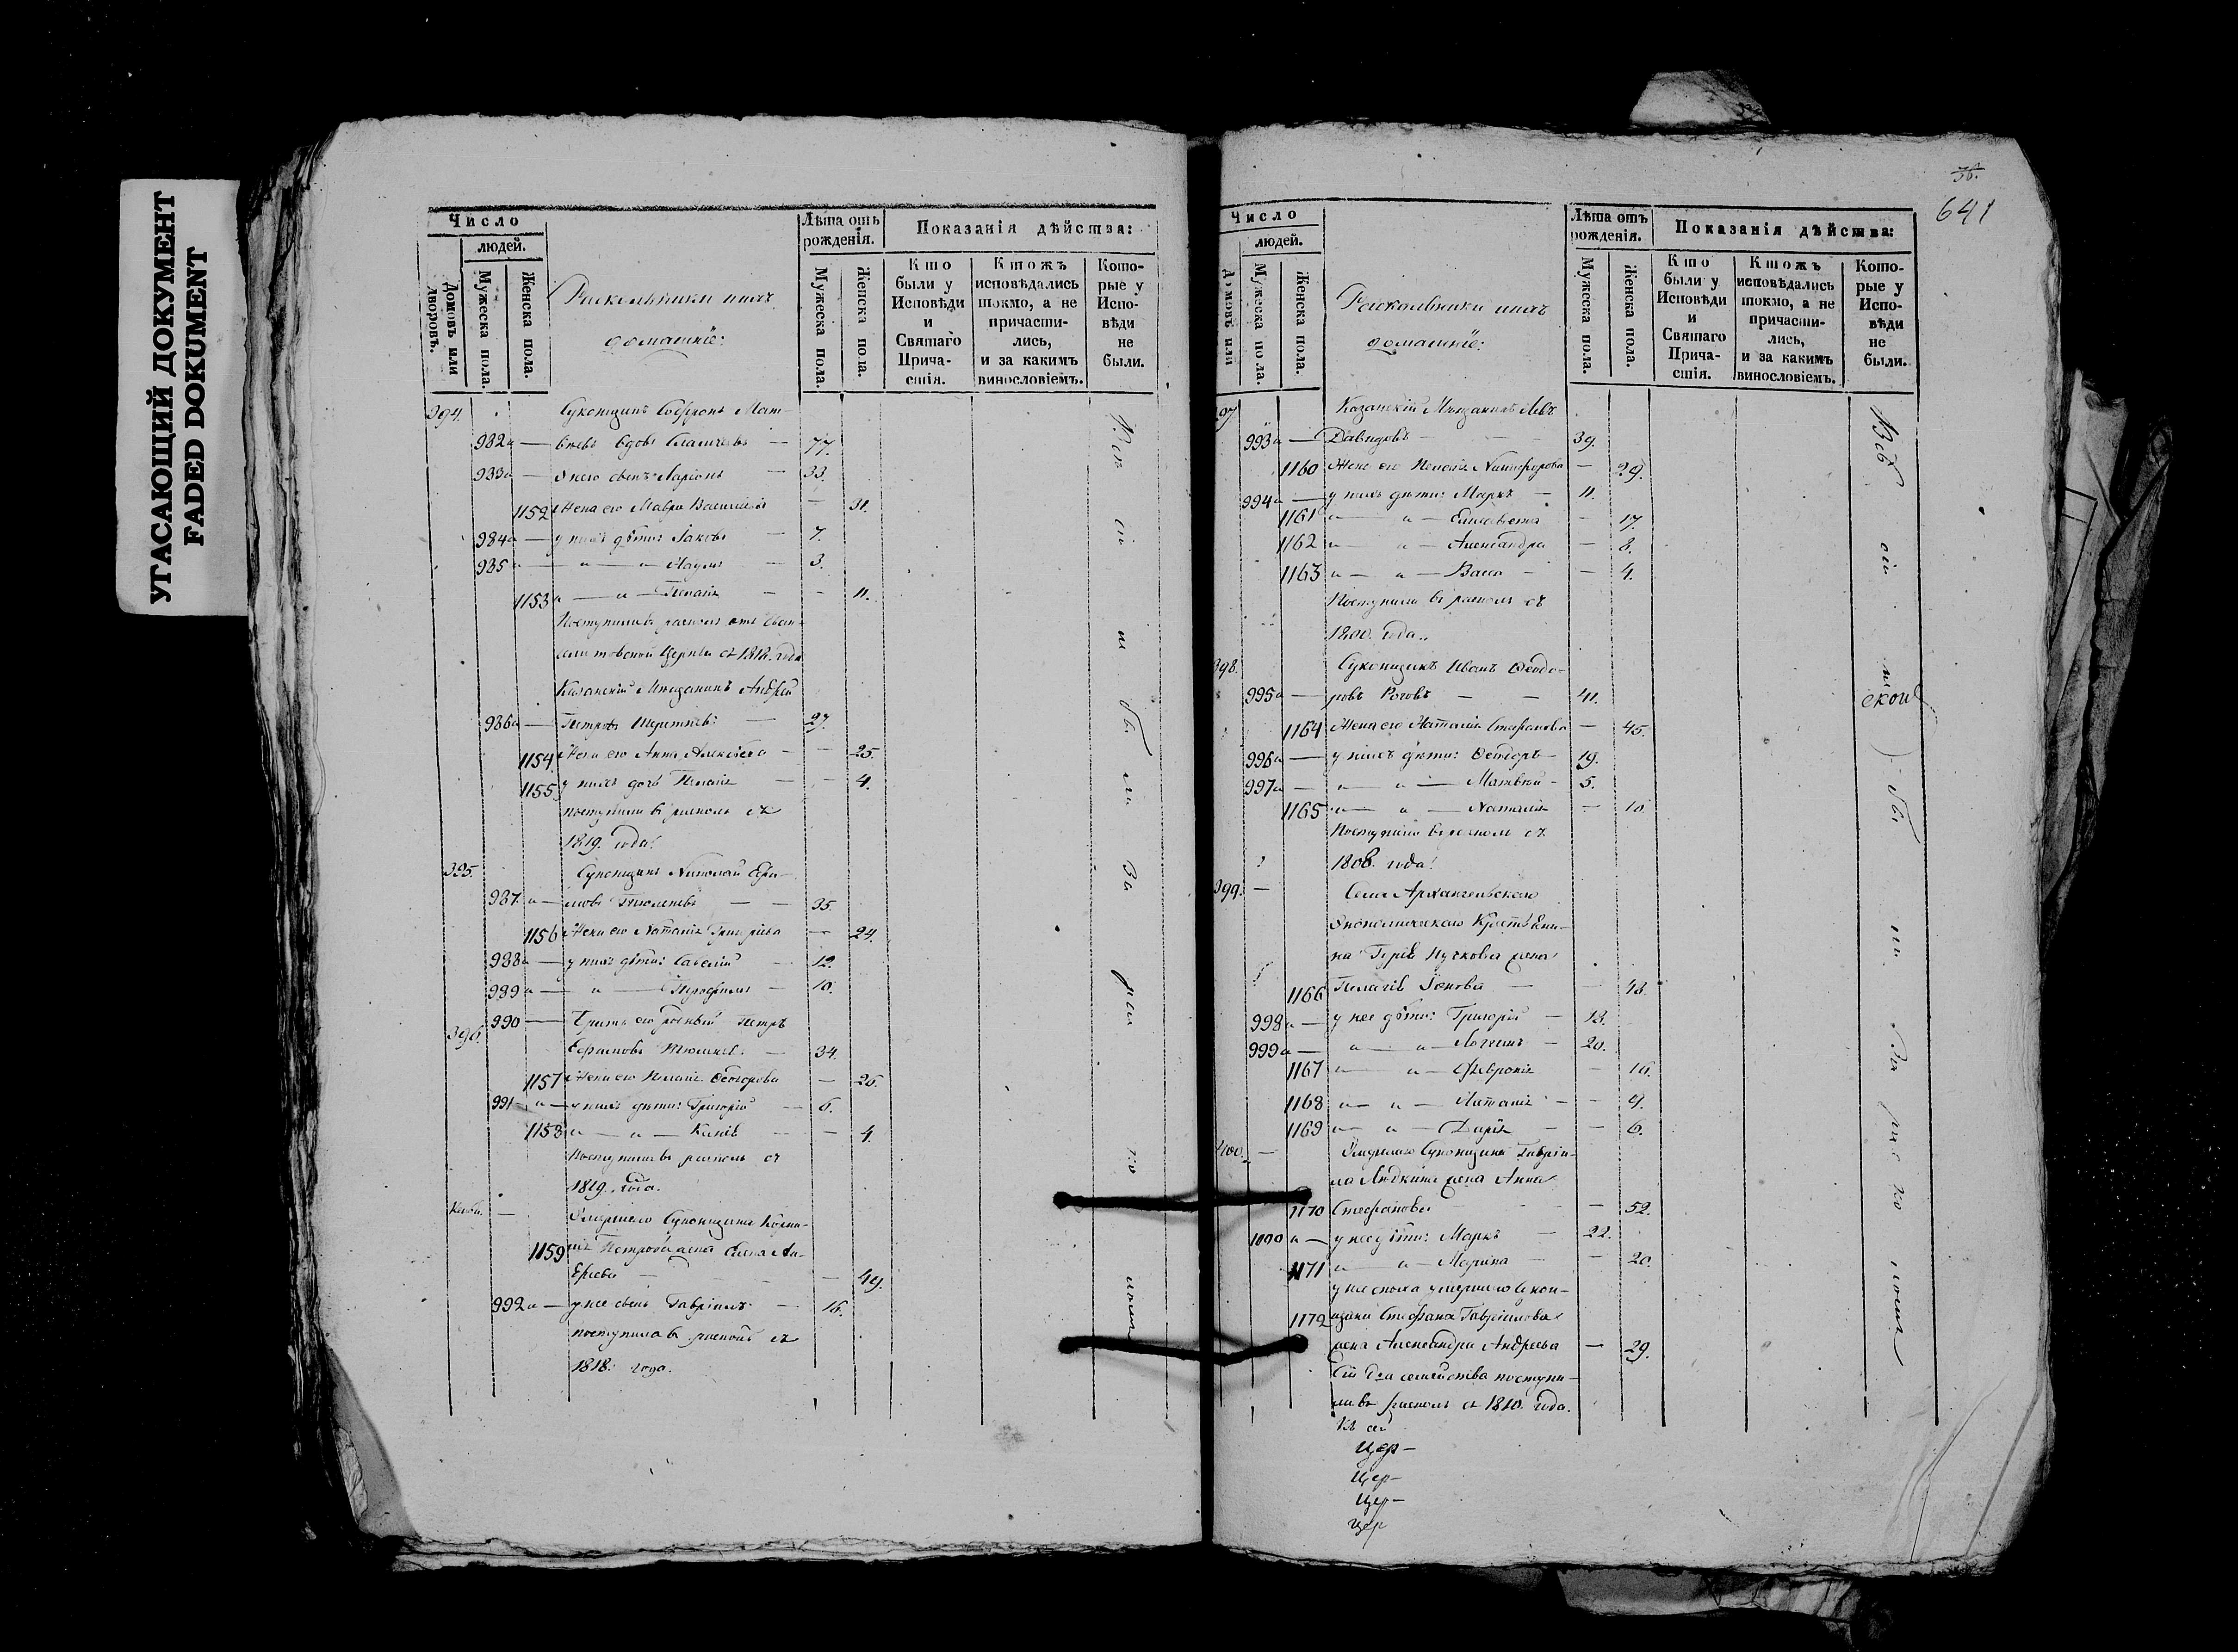 УГАСАЮЩИЙ ДОКУМЕНТ
FADED DOKUMENT
Число
людей.
Домовъ или дворовъ.
Мужеска пола.
Женска пола.
Раскольники ихъ
домашніе:
Лѣта отъ рожденія.
Мужеска пола.
Женска пола.
Показанія дѣйства:
Кто были у Исповѣди и Святаго Причастія.
Ктожъ исповѣдались токмо, а не причастились, и за какимъ винословіемъ.
Которые у Исповѣди не были.
394. Суконщикъ Софронъ Мат-
982 вѣевъ вдовъ 77.
983 У него сынъ Ларіонъ 33.
1152 Жена его Мавра Васильева 31.
984 у нихъ дѣти: Іаковъ 7.
985 Наумъ 3.
1153 Пелагія 11.
Поступили въ расколъ отъ Еван-
гелистовской Церкви съ 1812. года
Казанскій Мѣщанинъ Андрей
986 Петровъ 27.
1154 Жена его Анна Алексѣева 25.
1155 у нихъ дочь Пелагія 4.
поступили въ расколъ съ
1819. года.
395. Суконщикъ Николай Ефи-
987 мовъ 35.
1156 Жена его Наталія Григорьева 24.
988 у нихъ дѣти: Савелій 12.
989 Трофимъ 10.
396. 990 Братъ его родный Петръ
Ефимовъ 34.
1157 Жена его Пелагія Ѳеодорова 26.
991 у нихъ дѣти: Григорій 6.
1158 4.
Поступили въ расколъ съ
1819. года.
Умершаго Суконщика Корни-
1159 лія Петрова жена Елена Ан-
дреева 49.
992 у нее сынъ Гавріилъ 16.
поступила въ расколъ съ
1818. года.
Всѣ сіи не были за расколомъ
36.
641
Число
людей.
Домовъ или
Мужеска пола.
Женска пола.
Раскольники ихъ
домашніе:
Лѣта отъ рожденія.
Мужеска пола.
Женска пола.
Показанія дѣйства:
Кто были у Исповѣди и Святаго Причастія.
Ктожъ исповѣдались токмо, а не причастились, и за какимъ винословіемъ.
Которые у Исповѣди не были.
397 Казанскій Мѣщанинъ Левъ
993 Давидовъ 39.
1160 Жена его Пелагія Никифорова 29.
994 у нихъ дѣти: Маркъ 11.
1161 Елисавета 17.
1162 Александра 8.
1163 Васса 4.
Поступили въ расколъ съ
1800. года.
398. Суконщикъ Иванъ Ѳеодо-
995 ровъ Роговъ 41.
1164 Жена его Наталія Стефанова 45.
996 у нихъ дѣти: Ѳеодоръ 19.
997 Матвѣй 5.
1165 Наталія 10.
Поступили въ расколъ съ
1808. года.
399. Села Архангельскаго
Экономическаго Крестьяни-
на Пучкова жена
1166 Пелагія Іонова 48.
998 у нее дѣти: Григорій 18.
999 20.
1167 Февронія 16.
1168 Наталія 9.
1169 Дарія 6.
400. Умершаго Суконщика Гаврі-
ла Людкина жена Анна
1170 Стефанова 52.
1000 у нее дѣти: Маркъ 22.
1171 Марина 20.
у нее сноха умершаго сукон-
1172 щика Стефана Гаврилова
жена Александра Андреева 29.
Сіи два семейства поступи-
ли въ расколъ съ 1810. года.
Всѣ сіи не были за расколомъ
скои
Цер-
Цер-
Цер-
Цер